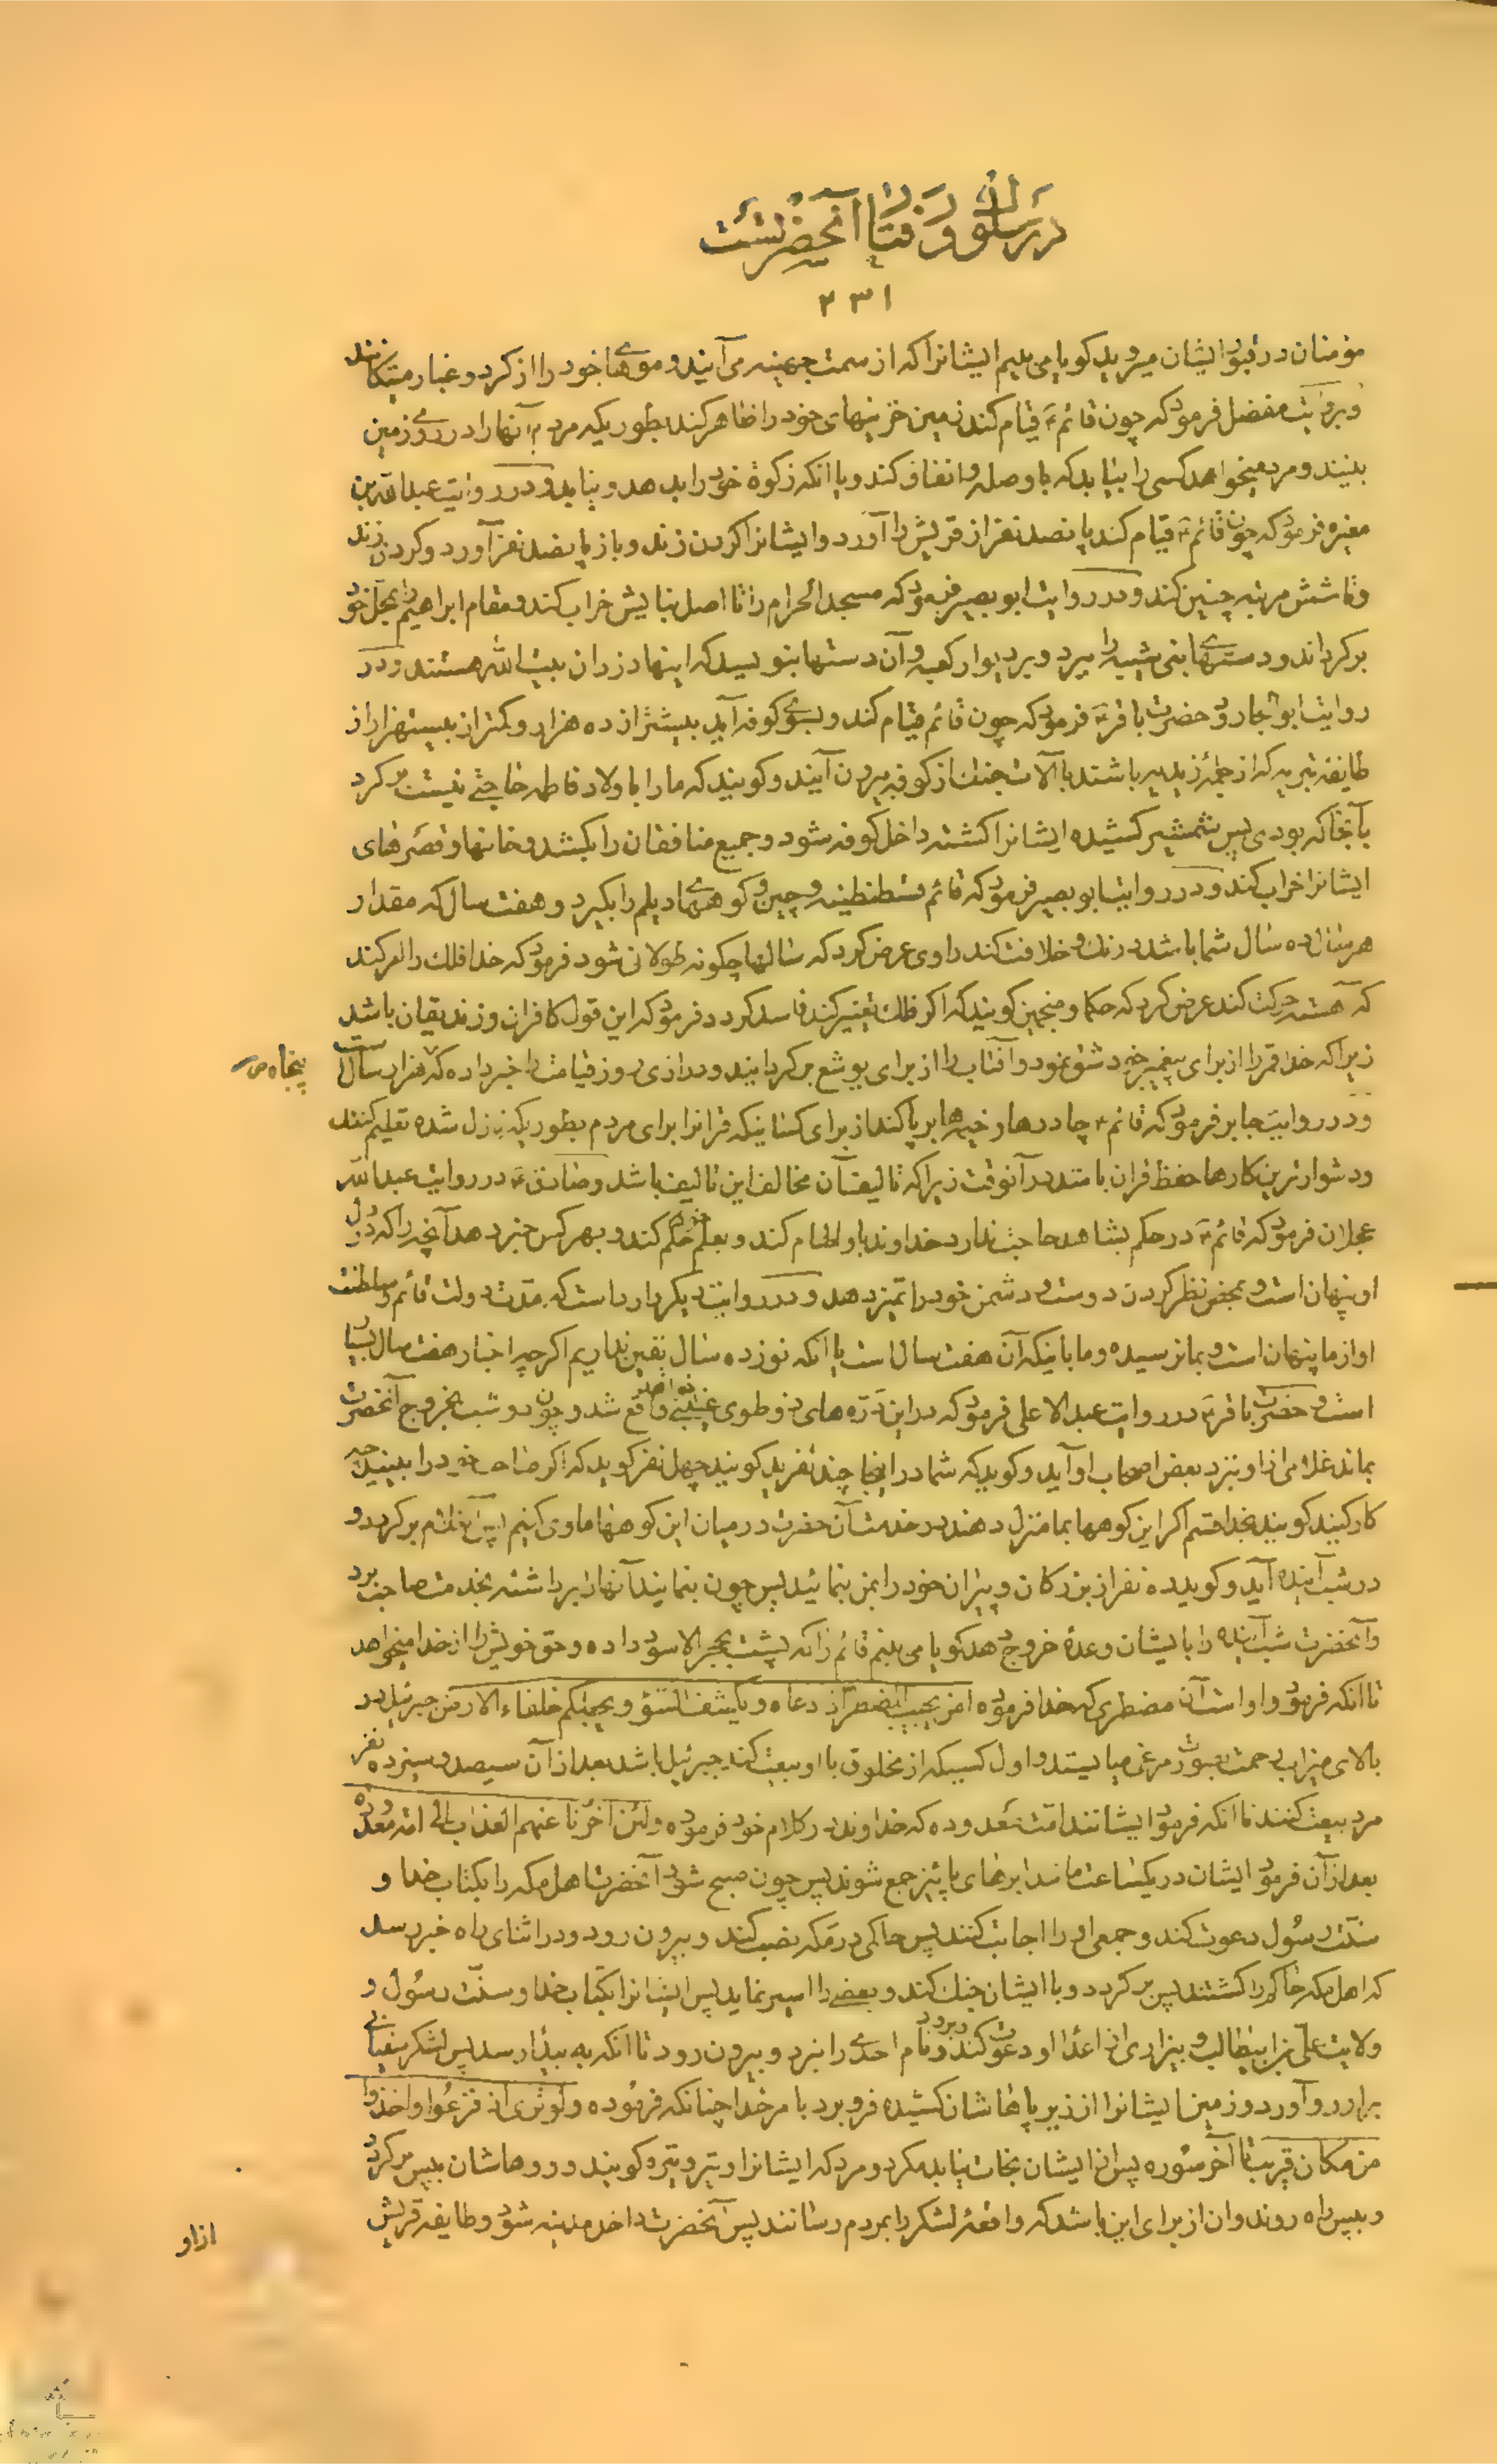 در سلوک و رفتار آنحضرتست
۲۳۱
مؤمنان در قبور ایشان میروید کویا می بینم ایشانرا که از سمت جهینه می آیند و موهای خود را از کرد و غبار میتکانند
و بروایت مفضل فرمود که چون قائم ع قیام کند زمین خزینهای خود را ظاهر کند بطوریکه مردم آنها را در روی زمین
ببینند و مرد میخواهد کسی را بیابد که باو صله و انفاق کند و یا انکه زکوة خود را بدهد و نیابد و در روایت عبدالله بن
مغیره فرمود که چون قائم ع قیام کند پانصد نفر از قریش را آورد و ایشانرا کردن زند و باز پانصد نفر آورد و کردن زند
و تا شش مرتبه چنین کند و در روایت ابو بصیر فرمود که مسجد الحرام را تا اصل بنایش خراب کند و مقام ابراهیم را بمحل خود
برکرداند و دستهای بنی شیبه را ببرد و بر دیوار کعبه و آن دستها بنویسد که اینها دزدان بیت الله هستند و در
روایت ابو الجارود حضرت باقر ع فرمود که چون قائم قیام کند و بسوی کوفه آید بیشتر از ده هزار و کمتر از بیستهزار از
طایفه تبریه که از جمله زیدیه باشند با آلات جنک از کوفه بیرون آیند و کویند که ما را باولاد فاطمه حاجتی نیست برکرد
بآنجا که بودی پس شمشیر کشیده ایشانرا کشته داخل کوفه شود و جمیع منافقان را بکشد و خانها و قصرهای
ایشانرا خراب کند و در روایت ابو بصیر فرمود که قائم قسطنطنیه و چین و کوههای دیلم را بکیرد و هفت سال که مقدار
هر سال ده سال شما باشد درنک و خلافت کند راوی عرض کرد که سالها چکونه طولانی شود فرمود که خدا فلک را امر کند
که آهسته حرکت کند عرض کرد که حکما و منجمین کویند که اکر فلک تغییر کند فاسد کردد فرمود که این قول کافران و زندیقان باشد
زیرا که خدا قمر را از برای پیغمبر خود شق نمود و آفتاب را از برای یوشع برکردانید و درازی روز قیامت را خبر داده که هزار سالست
پنجاه ص
و در روایت جابر فرمود که قائم ع چادرها و خیمه ها برپا کند از برای کسانیکه قرانرا برای مردم بطوریکه نازل شده تعلیم کنند
و دشوارترین کارها حفظ قران باشد در آنوقت زیرا که تالیف آن مخالف این تالیف باشد و صادق ع در روایت عبدالله
عجلان فرمود که قائم ع در حکم بشاهد حاجت ندارد خداوند باو الهام کند و بعلم خود حکم کند و بهر کس خبر دهد آنچه را که در دل
او پنهان است و بمحض نظر کردن دوست و دشمن خود را تمیز دهد و در روایت دیکر وارد است که مدت دولت قائم و سلطنت
او از ما پنهان است و بما نرسیده و ما باینکه آن هفت سال است یا انکه نوزده سال یقین نداریم اکرچه اخبار هفت سال بسیار
است و حضرت باقر ع در روایت عبد الاعلی فرمود که در این درّه های ذو طوی غیبتی واقع شد و چون دو شب بخروج آنحضرت
بماند غلامی از او بنزد بعض اصحاب او آید و کوید که شما در اینجا چند نفرید کویند چهل نفر کوید که اکر صاحب خود را ببینید چه
کار کنید کویند بخدا قسم اکر این کوهها بما منزل دهند در خدمت آن حضرت در میان این کوهها ماوی کنیم پس غلام برکردد و
در شب آینده آید و کوید ده نفر از بزرکان و پیران خود را بمن بنمائید پس چون بنمایند آنها را برداشته بخدمت صاحب برد
و آنحضرت شب آینده را بایشان وعدۀ خروج دهد کویا می بینم قائم را که پشت بحجر الاسود داده و حق خویش را از خدا میخواهد
تا انکه فرمود و او است آن مضطری که خدا فرموده امن یجیب المضطر اذا دعاه و یکشف السّوء و یجعلکم خلفاء الارض جبرئیل در
بالای میزاب رحمت بصورت مرغی میایستد و اول کسیکه از مخلوق با او بیعت کند جبرئیل باشد بعد از آن سیصد و سیزده نفر
مرد بیعت کنند تا انکه فرمود ایشانند امّت معدوده که خداوند در کلام خود فرموده و لئن اخّرنا عنهم العذاب الی امّة معدودة
بعد از آن فرمود ایشان در یکساعت مانند ابرهای پائیز جمع شوند پس چون صبح شود آنحضرت اهل مکه را بکتاب خدا و
سنّت رسول دعوت کند و جمعی او را اجابت کنند پس حاکمی در مکه نصب کند و بیرون رود و در اثنای راه خبر رسد
که اهل مکه حاکم را کشتند پس برکردد و با ایشان جنک کند و بعضی را اسیر نماید پس ایشانرا بکتاب خدا و سنّت رسول و
ولایت علی بن ابیطالب و بیزاری از اعداء او دعوت کند و نام احدی را نبرد و بیرون رود تا انکه به بیداء رسد پس لشکر سفیانی
براو رو آورد و زمین ایشانرا از زیر پاهاشان کشیده فرو برد بامر خدا چنانکه فرموده و لو تری اذ فزعوا و اخذوا
من مکان قریب تا آخر سوره پس از ایشان نجات نیابد مکر دو مرد که ایشانرا وتر و وتیره کویند و روهاشان بپس برکردد
و بپس راه روند و ان از برای این باشد که واقعۀ لشکر را بمردم رسانند پس آنحضرت داخل مدینه شود و طایفه قریش
از او